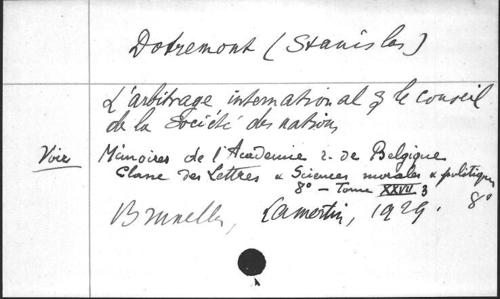 Dotremont (Stanislas)
L'arbitrage international & le conseil
de la Société des nations
Voir Mémoires de l'Académie r. de Belgique
Classe des Lettres & Sciences morales & politiques
8° - Tome XXVII 3
Bruxelles, Lamertin, 1929. 8°